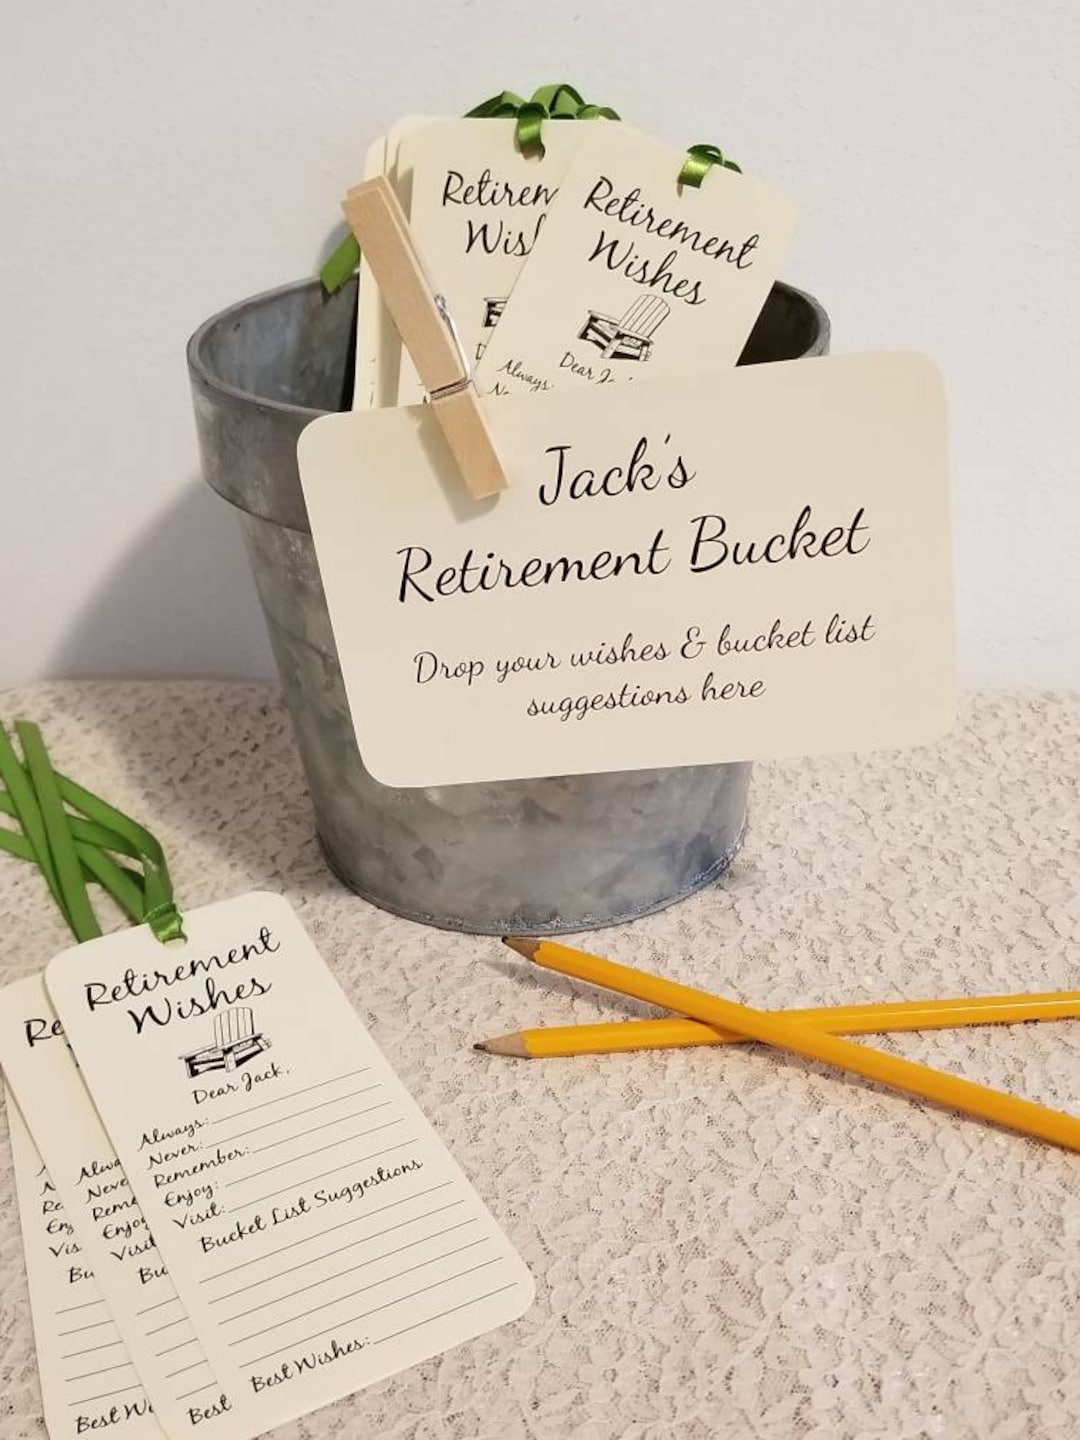 Retirement
Wishes
Always:
Dear J
Jack's
Retirement Bucket
Drop your wishes & bucket list
suggestions here
Retirement
Wishes
Dear Jack,
Always:
Never:
Remember:
Enjoy:
Visit:
Bucket List Suggestions
Best Wishes:
Retiren
Wis
Re
Alwa
Neve
Reme
Enjoy
Visit
Bu
Best
Re
En
Vis
Bu
Best W